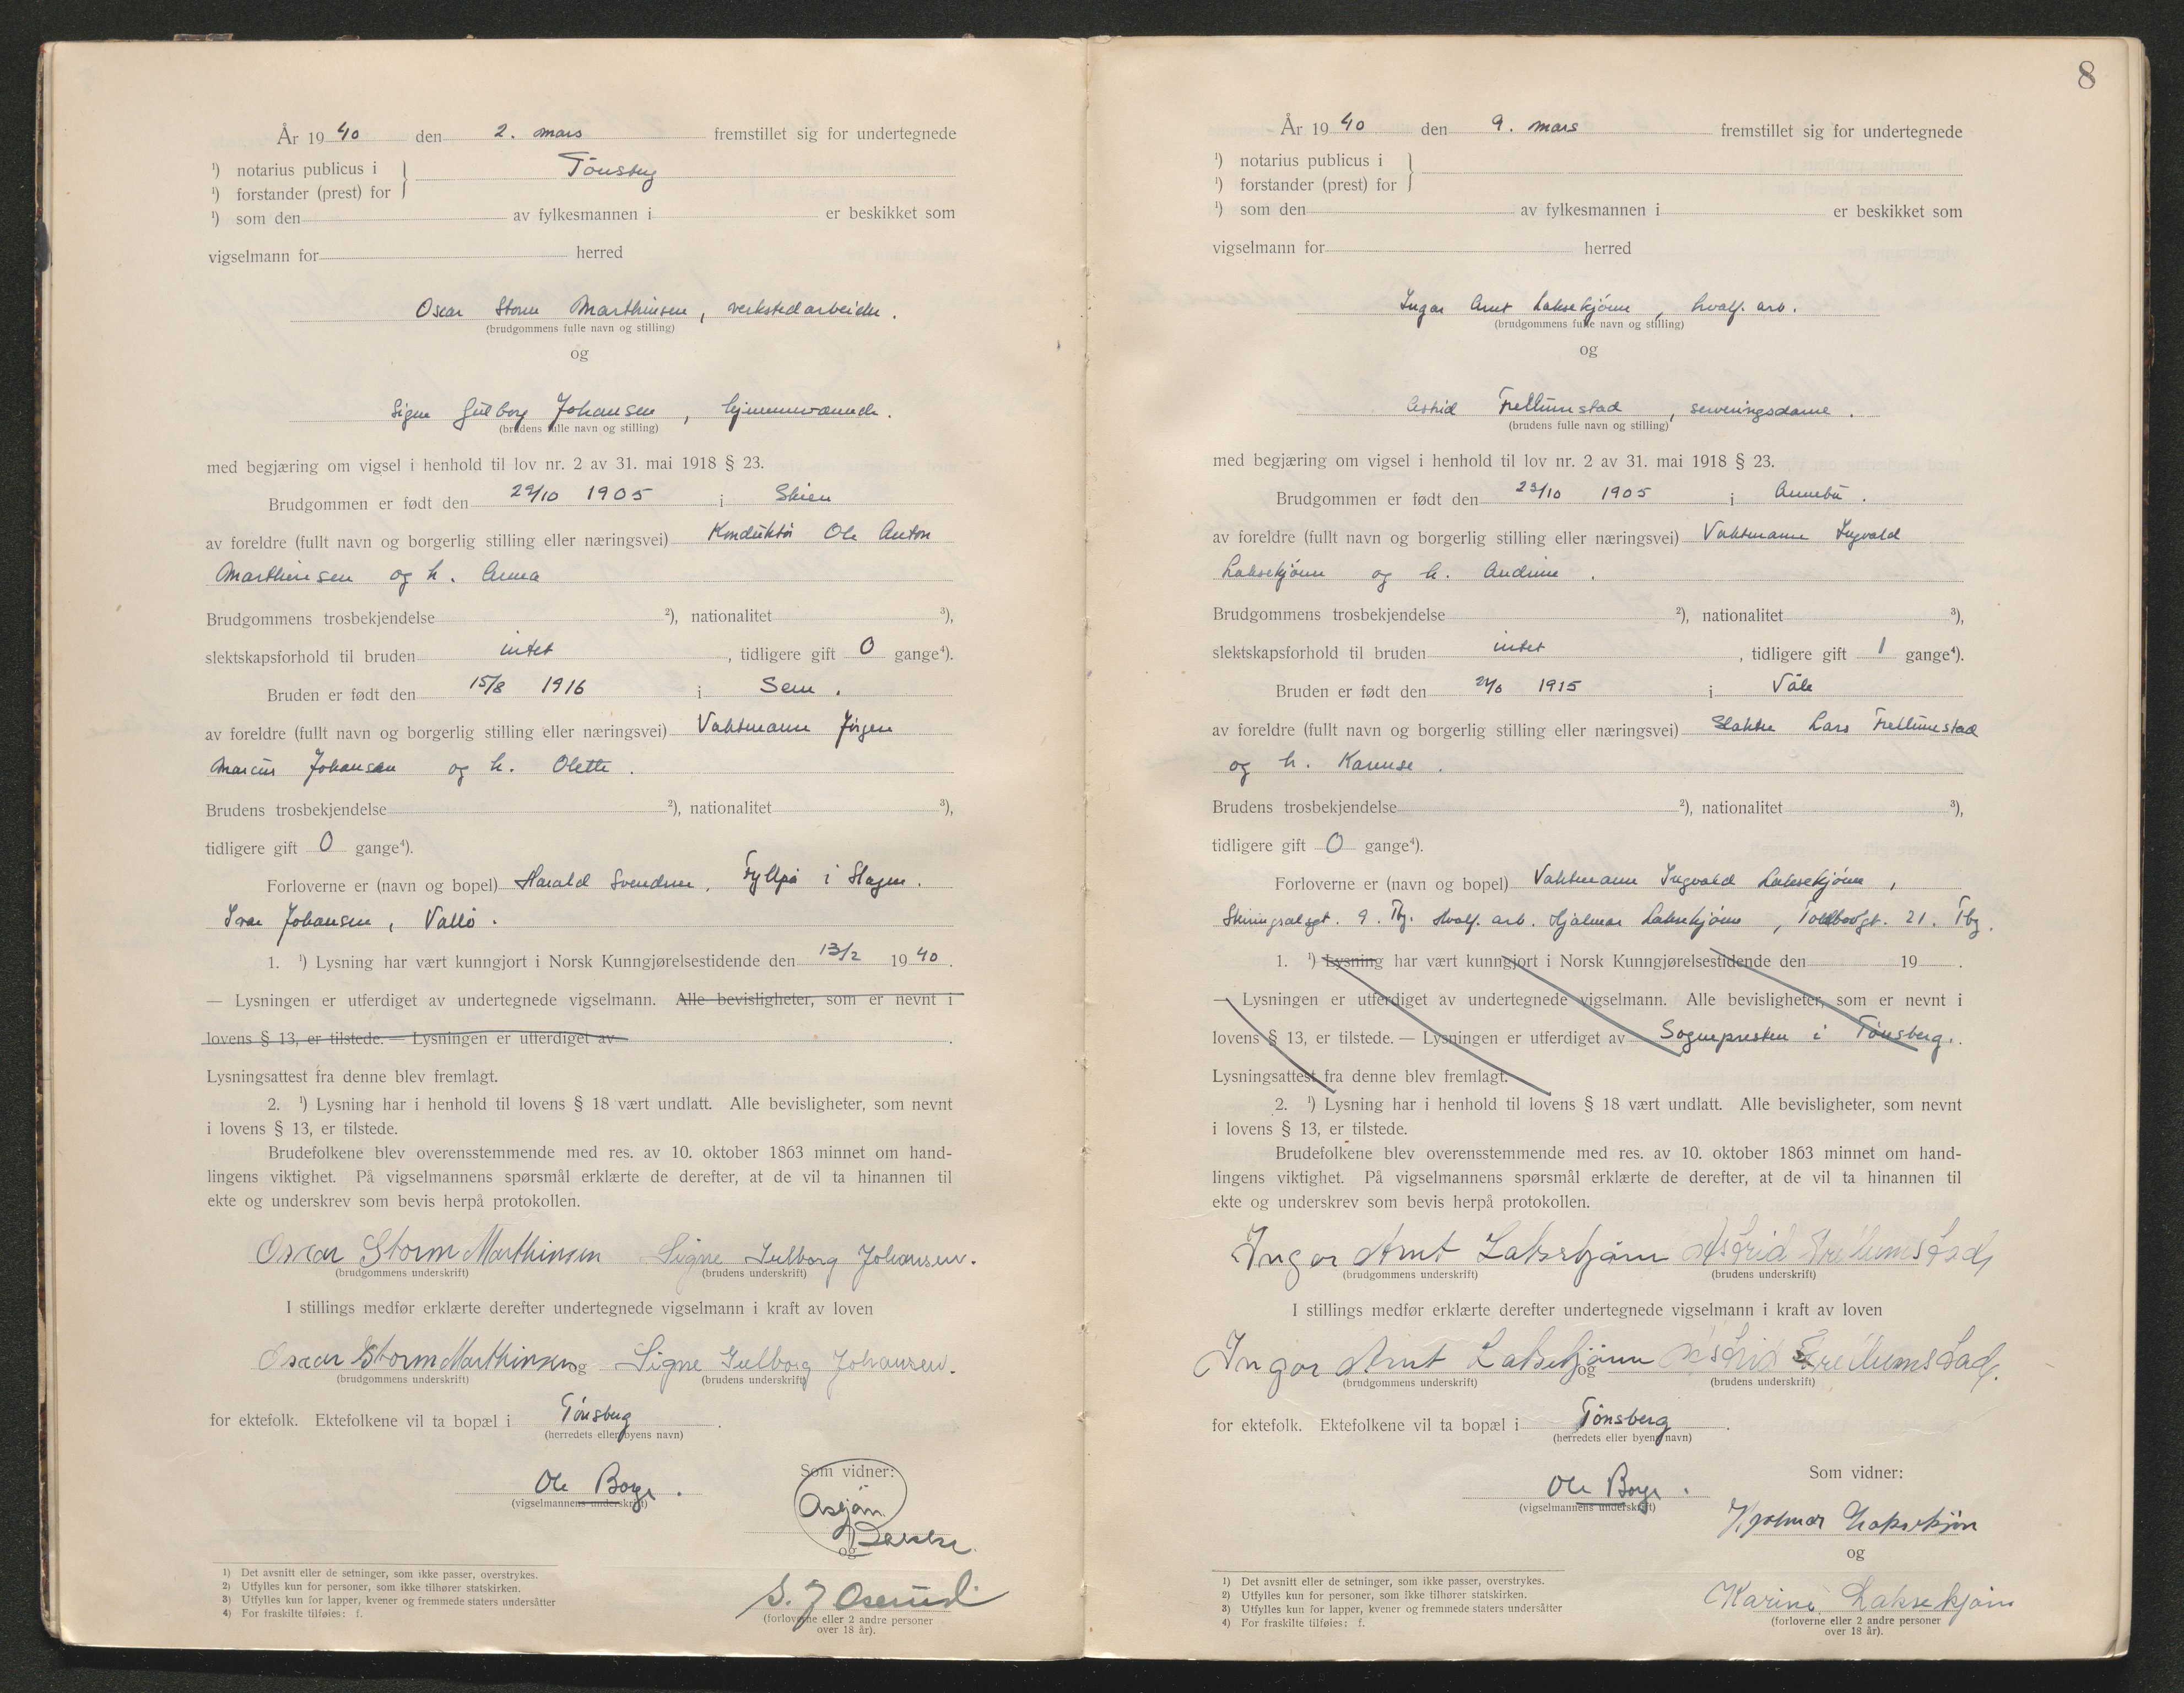 År 1940 den 2. mars fremstillet sig for undertegnede
¹) notarius publicus i } Tønsberg
¹) forstander (prest) for
¹) som den av fylkesmannen i er beskikket som
vigselmann for herred
Oscar Storm Marthinsen, verkstedarbeider.
(brudgommens fulle navn og stilling)
og
Signe Gulborg Johansen, hjemmeværende.
(brudens fulle navn og stilling)
med begjæring om vigsel i henhold til lov nr. 2 av 31. mai 1918 § 23.
Brudgommen er født den 29/10 1905 i Skien
av foreldre (fullt navn og borgerlig stilling eller næringsvei) Konduktør Ole Anton
Marthinsen og h. Anna
Brudgommens trosbekjendelse ²), nationalitet ³),
slektskapsforhold til bruden intet, tidligere gift 0 gange⁴).
Bruden er født den 15/8 1916 i Sem.
av foreldre (fullt navn og borgerlig stilling eller næringsvei) Vaktmann Jørgen
Marcus Johansen og h. Olette.
Brudens trosbekjendelse ²), nationalitet ³),
tidligere gift 0 gange⁴).
Forloverne er (navn og bopel) Harald Svendsen, i Slagen.
Ivar Johansen, Vallø.
1. ¹) Lysning har vært kunngjort i Norsk Kunngjørelsestidende den 13/2 1940.
— Lysningen er utferdiget av undertegnede vigselmann. Alle bevisligheter, som er nevnt i
lovens § 13, er tilstede. — Lysningen er utferdiget av .
Lysningsattest fra denne blev fremlagt.
2. ¹) Lysning har i henhold til lovens § 18 vært undlatt. Alle bevisligheter, som nevnt
i lovens § 13, er tilstede.
Brudefolkene blev overensstemmende med res. av 10. oktober 1863 minnet om hand-
lingens viktighet. På vigselmannens spørsmål erklærte de derefter, at de vil ta hinannen til
ekte og underskrev som bevis herpå protokollen.
Oscar Storm Marthinsen Signe Gulborg Johansen.
(brudgommens underskrift) (brudens underskrift)
I stillings medfør erklærte derefter undertegnede vigselmann i kraft av loven
Oscar Storm Marthinsen og Signe Gulborg Johansen.
(brudgommens underskrift) (brudens underskrift)
for ektefolk. Ektefolkene vil ta bopæl i Tønsberg.
(herredets eller byens navn)
Som vidner:
Ole Borge.
(vigselmannens underskrift)
Asbjørn
og
S. J. Oserud
(forloverne eller 2 andre personer
over 18 år).
1) Det avsnitt eller de setninger, som ikke passer, overstrykes.
2) Utfylles kun for personer, som ikke tilhører statskirken.
3) Utfylles kun for lapper, kvener og fremmede staters undersåtter
4) For fraskilte tilføies: f.
8
År 1940 den 9. mars fremstillet sig for undertegnede
¹) notarius publicus i }
¹) forstander (prest) for
¹) som den av fylkesmannen i er beskikket som
vigselmann for herred
Ingar Arnt Laksekjønn, hvalf. arb.
(brudgommens fulle navn og stilling)
og
Astrid Frellumstad, serveringsdame.
(brudens fulle navn og stilling)
med begjæring om vigsel i henhold til lov nr. 2 av 31. mai 1918 § 23.
Brudgommen er født den 23/10 1905 i Annebu.
av foreldre (fullt navn og borgerlig stilling eller næringsvei) Vaktmann Ingvald
Laksekjønn og h. Andrine.
Brudgommens trosbekjendelse ²), nationalitet ³),
slektskapsforhold til bruden intet, tidligere gift 1 gange⁴).
Bruden er født den 1915 i Våle
av foreldre (fullt navn og borgerlig stilling eller næringsvei) Slakter Lars Frellumstad
og h. Karense.
Brudens trosbekjendelse ²), nationalitet ³),
tidligere gift 0 gange⁴).
Forloverne er (navn og bopel) Vaktmann Ingvald Laksekjønn,
Skiringsalsgt. 9. Tbg. Hvalf. arb. Hjalmar Laksekjønn, Tollbodgt. 21. Tbg.
1. ¹) Lysning har vært kunngjort i Norsk Kunngjørelsestidende den 19 .
— Lysningen er utferdiget av undertegnede vigselmann. Alle bevisligheter, som er nevnt i
lovens § 13, er tilstede. — Lysningen er utferdiget av Sognepresten i Tønsberg.
Lysningsattest fra denne blev fremlagt.
2. ¹) Lysning har i henhold til lovens § 18 vært undlatt. Alle bevisligheter, som nevnt
i lovens § 13, er tilstede.
Brudefolkene blev overensstemmende med res. av 10. oktober 1863 minnet om hand-
lingens viktighet. På vigselmannens spørsmål erklærte de derefter, at de vil ta hinannen til
ekte og underskrev som bevis herpå protokollen.
Ingar Arnt Laksekjønn Astrid Frellumstad
(brudgommens underskrift) (brudens underskrift)
I stillings medfør erklærte derefter undertegnede vigselmann i kraft av loven
Ingar Arnt Laksekjønn og Astrid Frellumstad.
(brudgommens underskrift) (brudens underskrift)
for ektefolk. Ektefolkene vil ta bopæl i Tønsberg.
(herredets eller byens navn)
Som vidner:
Ole Borge.
(vigselmannens underskrift)
Hjalmar Laksekjøn
og
Karine Laksekjøn
(forloverne eller 2 andre personer
over 18 år).
1) Det avsnitt eller de setninger, som ikke passer, overstrykes.
2) Utfylles kun for personer, som ikke tilhører statskirken.
3) Utfylles kun for lapper, kvener og fremmede staters undersåtter
4) For fraskilte tilføies: f.